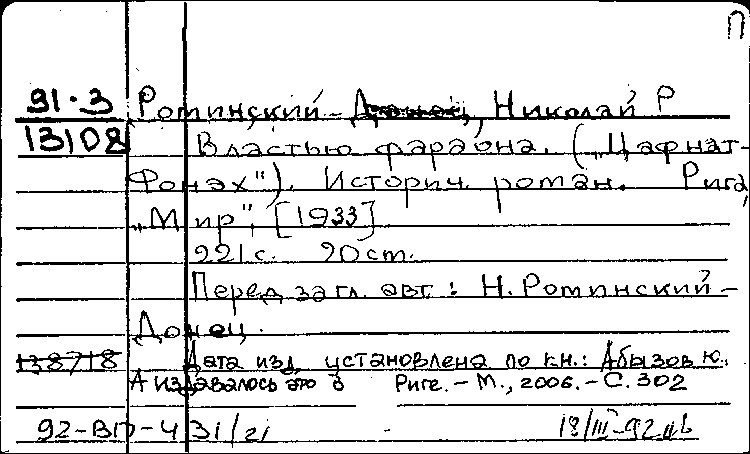 П
91·3 Роминский-Донец, Николай Р
13108 Властью фараона. („Цафнат-
Фонах"). Историч. роман. Рига,
„Мир", [1933]
221 с. 20 ст.
Перед загл. авт.: Н. Роминский-
Донец.
138718 Дата изд. установлена по кн.: Абызов Ю.
А издавалось это в Риге. – М., 2006. – С. 302
92-ВП-4 31/21 18/III-92